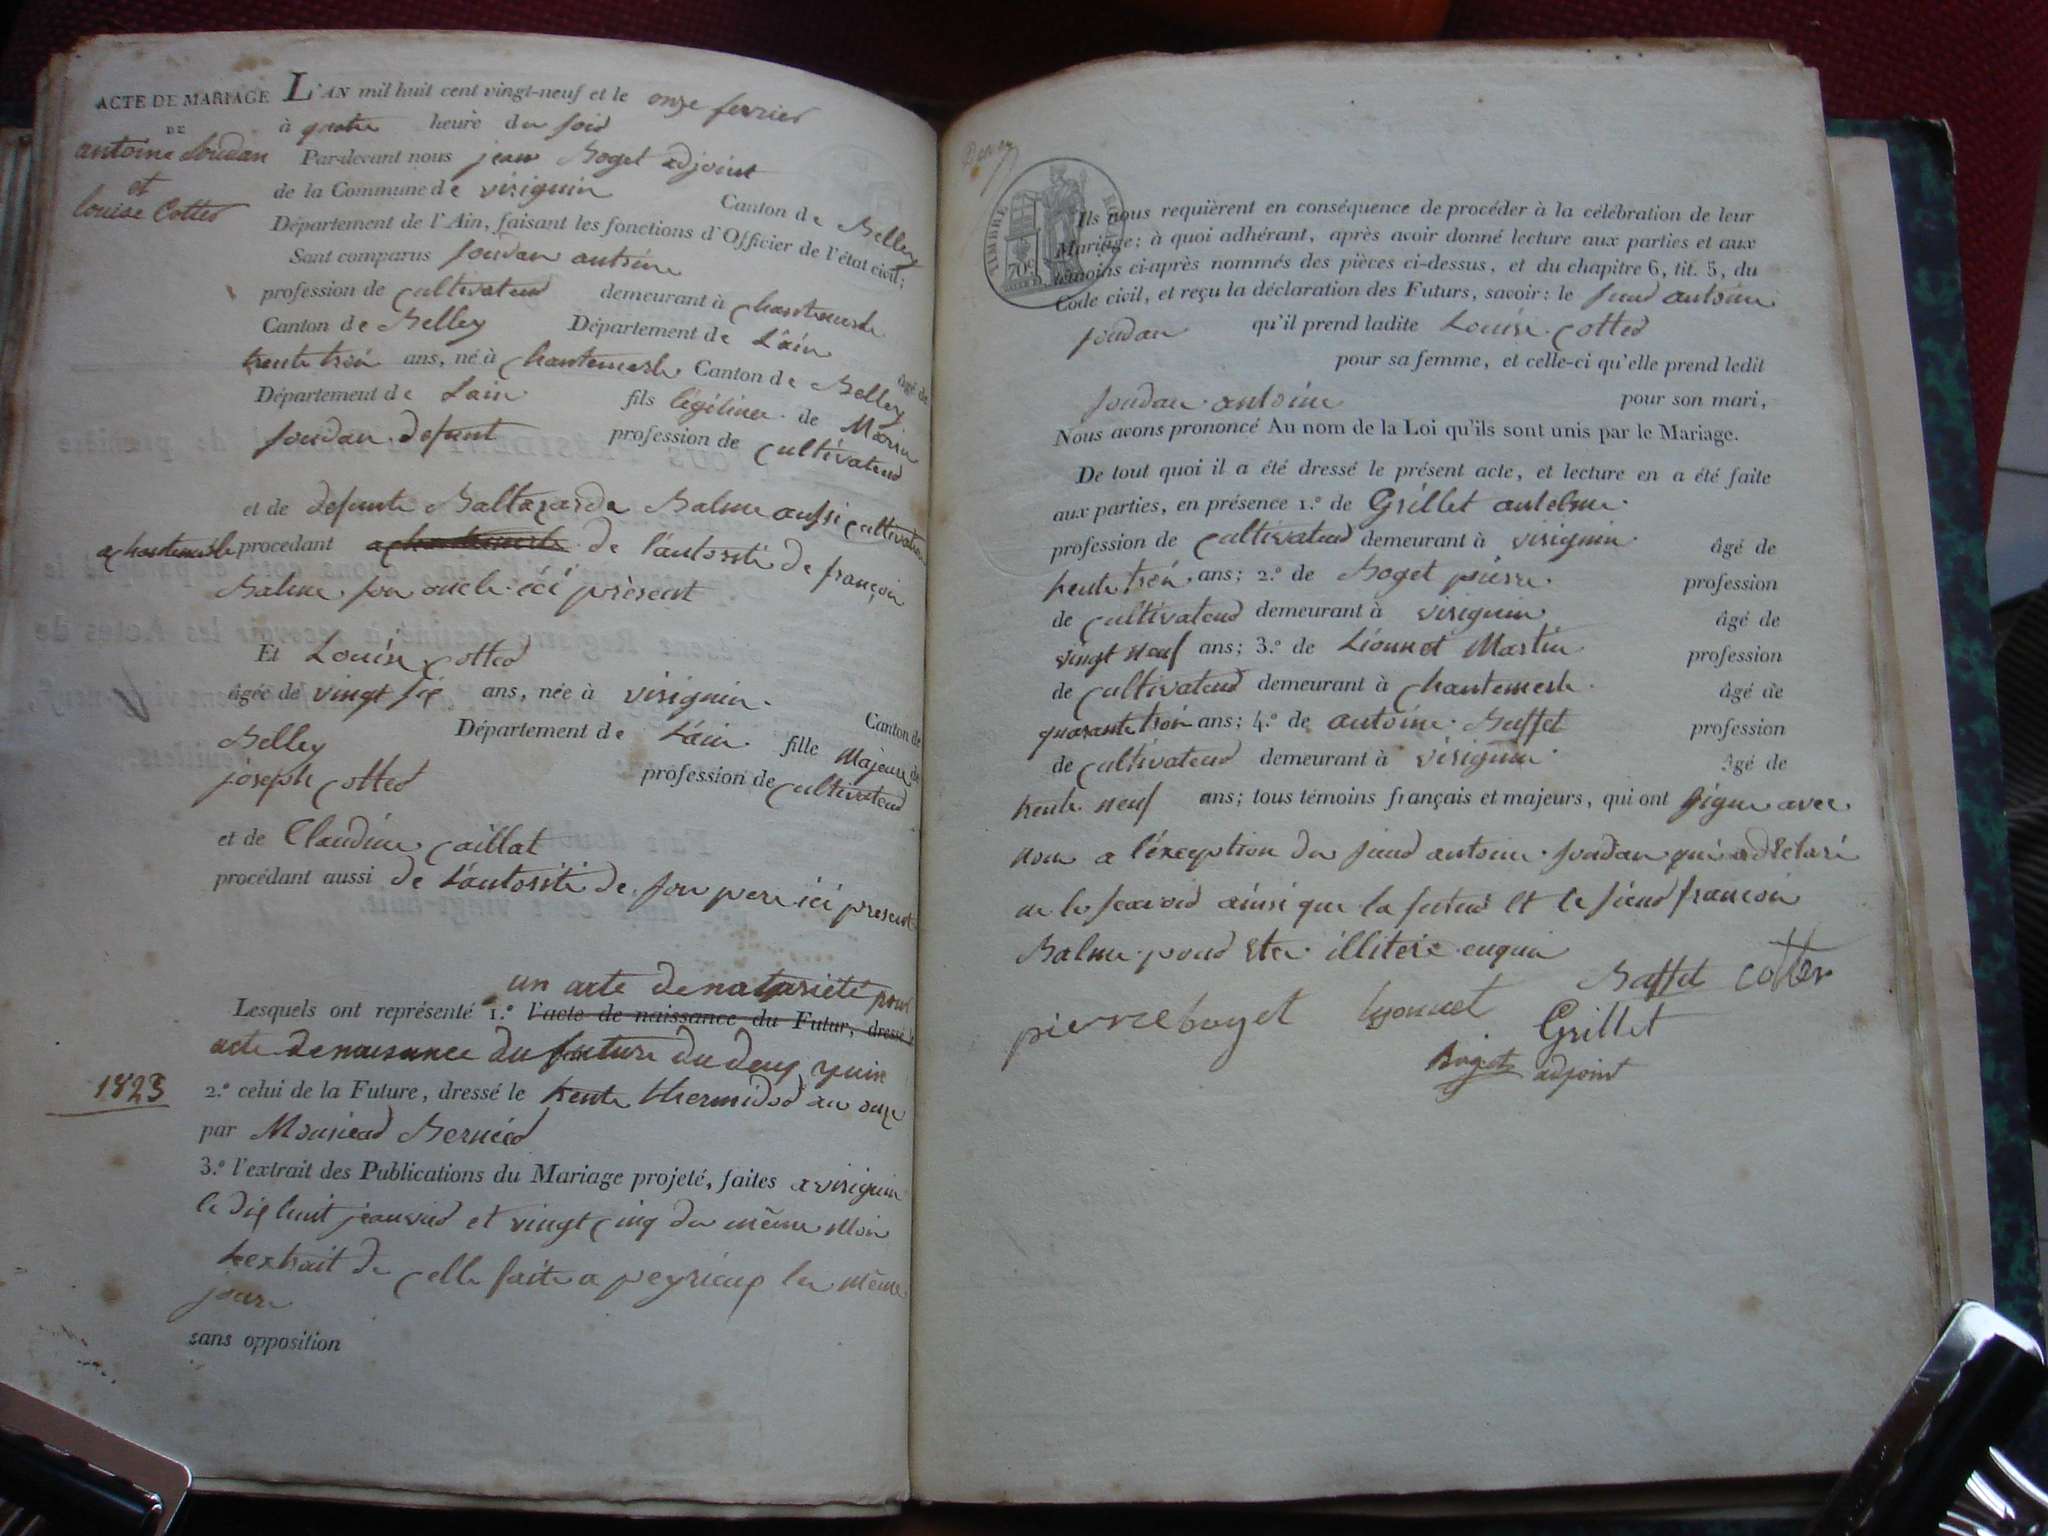 ACTE DE MARIAGE
DE
antoine Joudan
et
Louise Cotter
L'AN mil huit cent vingt-neuf et le onze fevrier
à quatre heure du soir
Par-devant nous jean Boget adjoint
de la Commune de virignin Canton de Belley
Département de l'Ain, faisant les fonctions d'Officier de l'état civil;
Sont comparus Joudan antoine
profession de cultivateur demeurant à chantemerle
Canton de Belley Département de L'ain âgé de
trente trois ans, né à chantemerle Canton de Belley
Département de Lain fils légitime de
Joudan defunt profession de cultivateur
et de defunte Baltazarde Balme aussi cultivateur
a chantemerle procedant a chantemerle de l'autorité de françois
Balme son oncle ici présent
Et Louise cotter
âgée de vingt six ans, née à virignin Canton de
Belley Département de L'ain fille Majeure de
joseph cotter profession de cultivateur
et de Claudine caillat
procédant aussi de L'autorité de son pere ici present
un acte de natariété pour
Lesquels ont représenté 1.º l'acte de naissance du Futur, dressé le
acte de naisance du future du deux juin
1823
2.º celui de la Future, dressé le trente thermidor an onze
par Monsieur Bernier
3.º l'extrait des Publications du Mariage projeté, faites a virignin
le dix huit jeanvier et vingt cinq du même Moi
L'extrait de celle faite a peyrieux le même
jour
sans opposition
TIMBRE ROYAL
70c
Ils nous requièrent en conséquence de procéder à la célébration de leur
Mariage; à quoi adhérant, après avoir donné lecture aux parties et aux
témoins ci-après nommés des pièces ci-dessus, et du chapitre 6, tit. 5, du
Code civil, et reçu la déclaration des Futurs, savoir: le sieur antoine
joudan qu'il prend ladite Louise cotter
pour sa femme, et celle-ci qu'elle prend ledit
Joudan antoine pour son mari,
Nous avons prononcé Au nom de la Loi qu'ils sont unis par le Mariage.
De tout quoi il a été dressé le présent acte, et lecture en a été faite
aux parties, en présence 1.º de Grillet antelme
profession de cultivateur demeurant à virignin âgé de
trente trois ans; 2.º de Boget pierre profession
de cultivateur demeurant à virignin âgé de
vingt neuf ans; 3.º de Lionnet Martin profession
de cultivateur demeurant à chantemerle âgé de
quarante trois ans; 4.º de antoine Baffet profession
de cultivateur demeurant à virignin âgé de
trente neuf ans; tous témoins français et majeurs, qui ont signe avec
nous a l'éxception du sieur antoine Joudan qui a déclaré
ne le scavoir ainsi que la future et le sieur francois
Balme pour etre illiteré enquis
pierre boget lyonnet Baffet cotter
Grillet
Boget adjoint